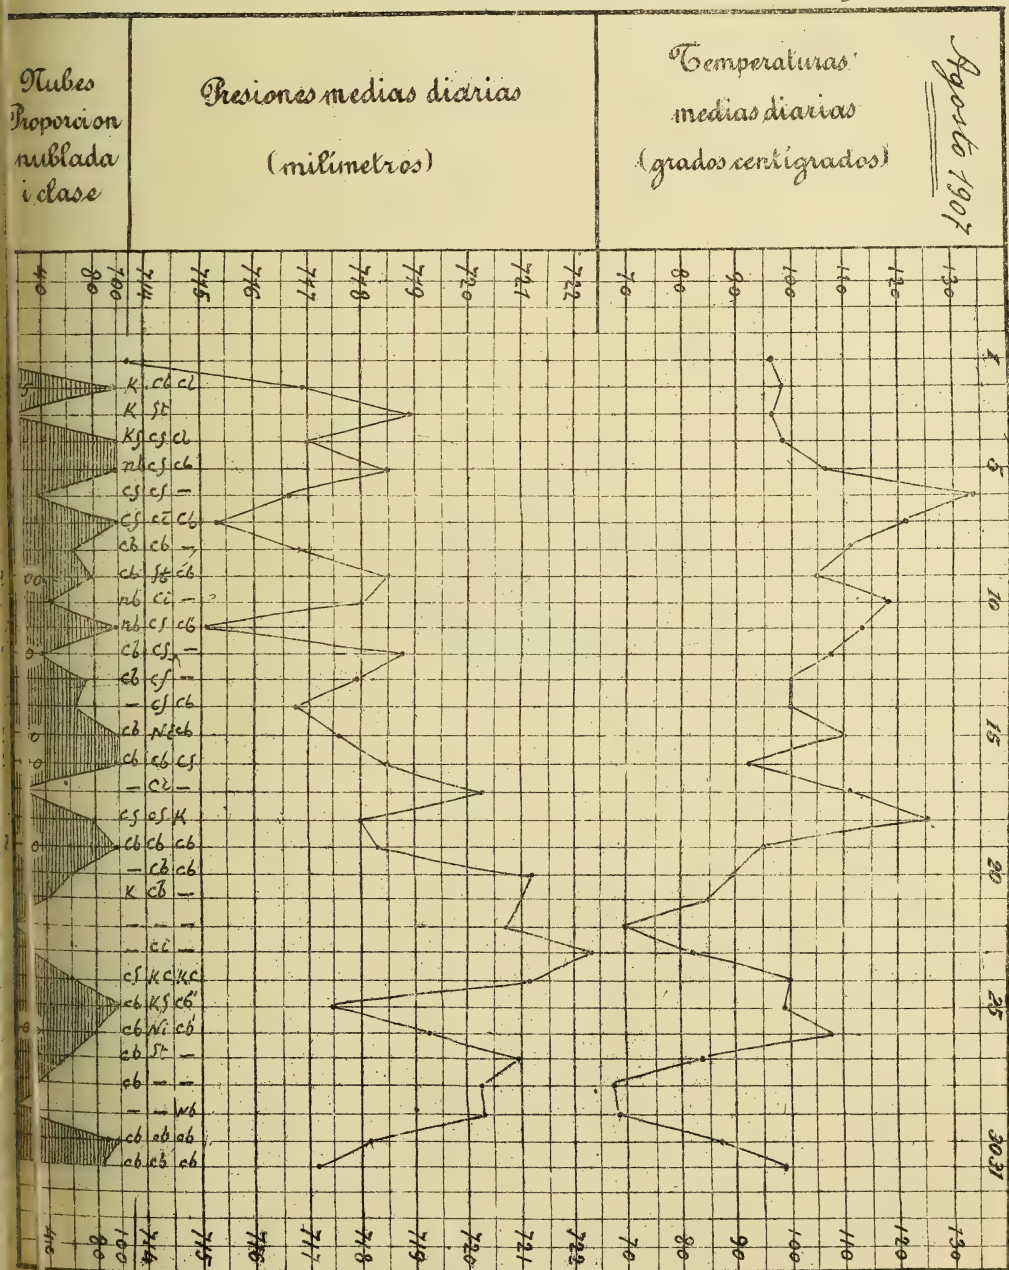 Agosto 1907
Nubes
Proporcion
nublada
i clase
Presiones medias diarias
(milímetros)
Temperaturas
medias diarias
(grados centígrados)
40 80 100 714 715 716 717 718 719 720 721 722 70 80 90 100 110 120 130
1
K cb cb
K St
KS CS cb
5
nb CS cb
CS CS —
CS ci cb
cb cb —
cb St cb
10
nb Ci —
nb CS cb
cb CS —
cb CS —
— CS cb
15
cb Ni cb
cb cb CS
— Ci —
CS CS K
cb cb cb
20
— cb cb
K cb —
— — —
— ci —
CS KC KC
25
cb KS cb
cb Ni cb
cb St —
cb — —
— — Nb
30 31
cb cb cb
cb cb cb
40 80 100 714 715 716 717 718 719 720 721 722 70 80 90 100 110 120 130